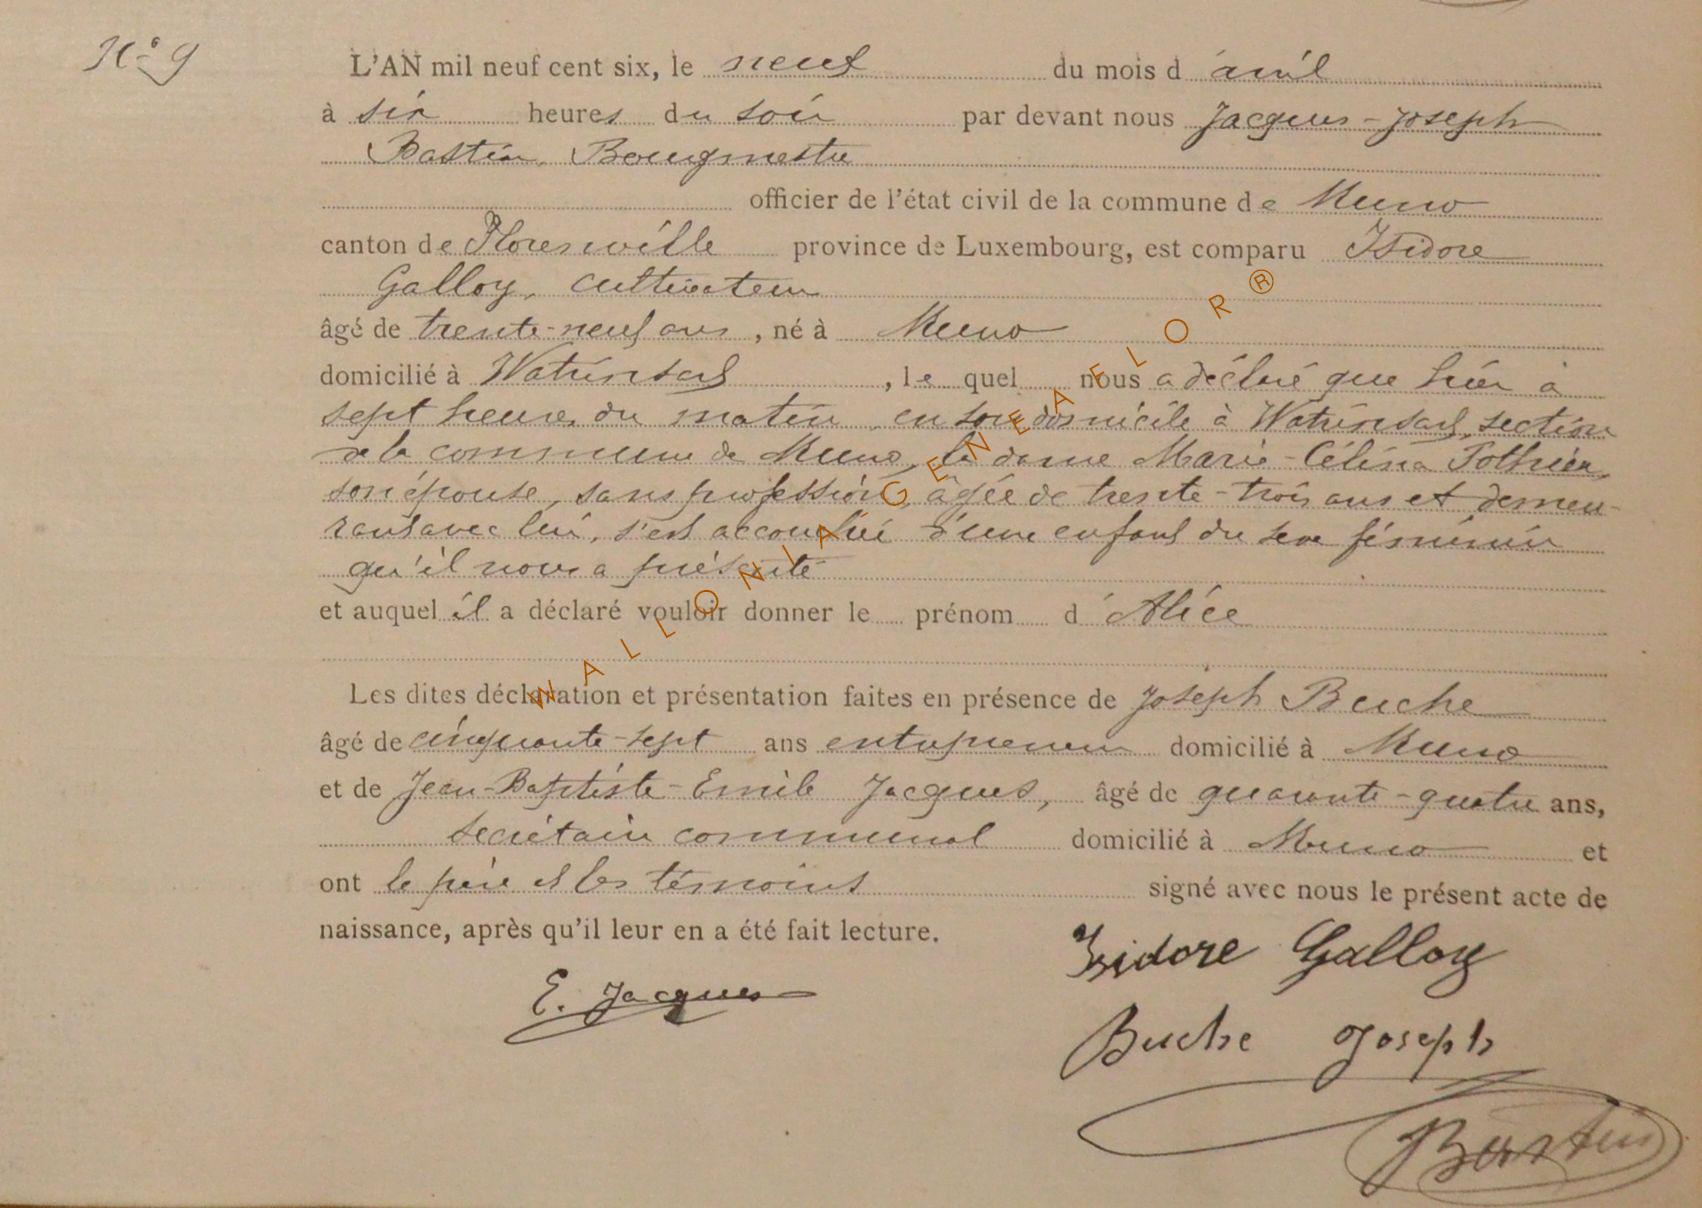 N° 9
L'AN mil neuf cent six, le neuf du mois d avril
à six heures du soir par devant nous Jacques-Joseph
Bastin, Bourgmestre
officier de l'état civil de la commune de Muno
canton de Florenville province de Luxembourg, est comparu Isidore
Galloy, cultivateur
âgé de trente-neuf ans, né à Muno
domicilié à Watrinsart, lequel nous a déclaré que hier à
sept heures du matin, en son domicile à Watrinsart, section
de la commune de Muno, la dame Marie-Célina Pothier,
son épouse, sans profession, âgée de trente-trois ans et demeu-
rant avec lui, s'est accouchée d'une enfant du sexe féminin
qu'il nous a présenté
et auquel il a déclaré vouloir donner le prénom d'Alice
Les dites déclaration et présentation faites en présence de Joseph Buche
âgé de cinquante-sept ans entrepreneur domicilié à Muno
et de Jean-Baptiste-Emile Jacques, âgé de quarante-quatre ans,
secrétaire communal domicilié à Muno et
ont le père et les témoins signé avec nous le présent acte de
naissance, après qu'il leur en a été fait lecture.
Isidore Galloy
E. Jacques
Buche Joseph
Bastin
WALLONIA GENEAFLOR®